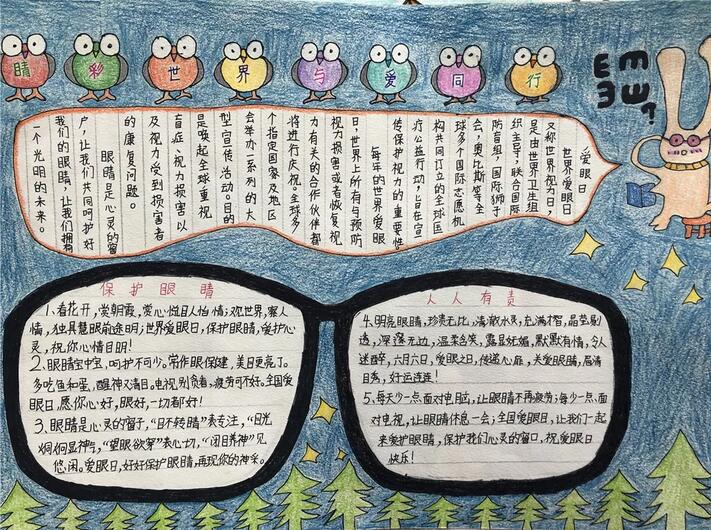 睛彩世界与爱同行
E m
ヨ W ?
爱眼日
世界爱眼日
又称世界视力日，
是由世界卫生组
织主导，联合国际
防盲组，国际狮子
会，奥比斯等全
球多个国际志愿机
构共同订立的全球医
疗公益行动，旨在宣
传保护视力的重要性
每年的世界爱眼
日，世界上所有与预防
视力损害或者恢复视
力有关的合作伙伴都
将进行庆祝。全球多
个指定国家及地区
会举办一系列的大
型宣传活动。目的
是唤起全球重视
盲症、视力损害以
及视力受到损害者
的康复问题。
眼睛是心灵的窗
户，让我们共同呵护好
我们的眼睛，让我们拥抱
一个光明的未来。
保护眼睛
1、看花开，赏朝霞，赏心悦目人怡情；观世界，察人
情，独具慧眼前途明；世界爱眼日，保护眼睛，爱护心
灵，祝你心情日明！
2、眼睛宝中宝，呵护不可少。常作眼保健，美目更亮了。
多吃鱼和蛋，醒神又清目。电视别贪看，疲劳可不好。全国爱
眼日，愿你心好，眼好，一切都好！
3、眼睛是心灵的窗子，“目不转睛”表专注，“目光
炯炯”显神气，“望眼欲穿”表心切，“闭目养神”见
悠闲。爱眼日，好好保护眼睛，再现你的神采。
人人有责
4、明亮眼睛，珍贵无比，清澈水灵，充满才智，晶莹剔
透，深藻无边，温柔含笑，露显妩媚，默默有情，令人
迷醉，六月六日，爱眼之日，传递心愿，关爱眼睛，眉清
目秀，好运连连！
5、每天少一点面对电脑，让眼睛不再疲劳；每少一点面
对电视，让眼睛休息一会；全国爱眼日，让我们一起
来爱护眼睛，保护我们心灵的窗口，祝爱眼日
快乐！